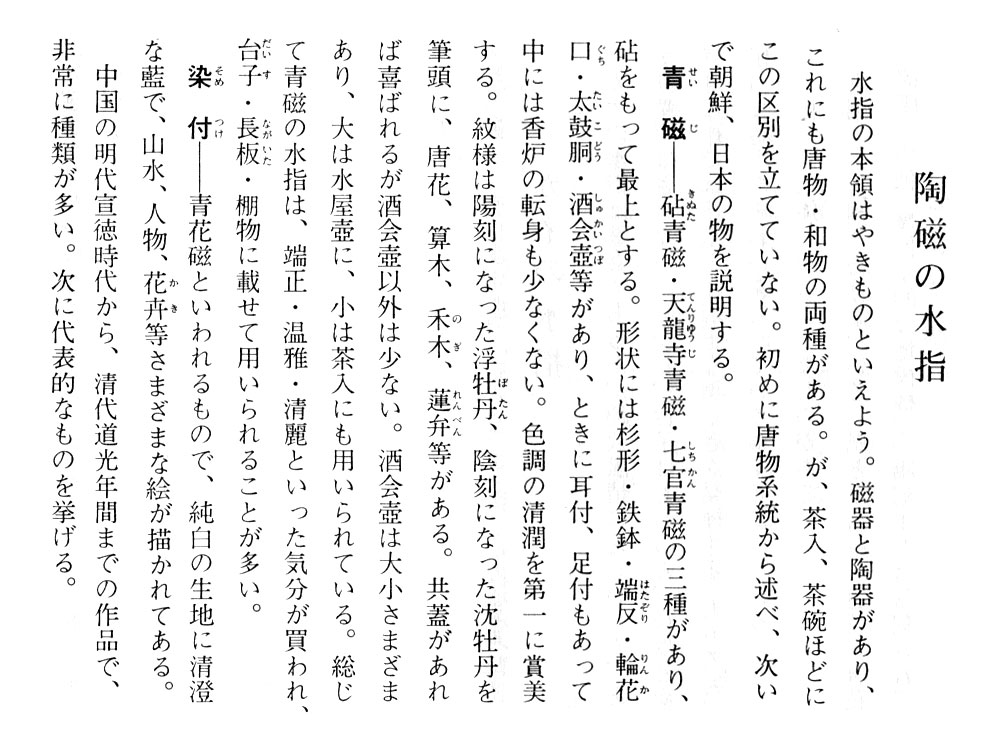 陶磁の水指
水指の本領はやきものといえよう。磁器と陶器があり、
これにも唐物・和物の両種がある。が、茶入、茶碗ほどに
この区別を立てていない。初めに唐物系統から述べ、次い
で朝鮮、日本の物を説明する。
青磁――砧青磁・天龍寺青磁・七官青磁の三種があり、
砧をもって最上とする。形状には杉形・鉄鉢・端反・輪花
口・太鼓胴・酒会壺等があり、ときに耳付、足付もあって
中には香炉の転身も少なくない。色調の清潤を第一に賞美
する。紋様は陽刻になった浮牡丹、陰刻になった沈牡丹を
筆頭に、唐花、算木、禾木、蓮弁等がある。共蓋があれ
ば喜ばれるが酒会壺以外は少ない。酒会壺は大小さまざま
あり、大は水屋壺に、小は茶入にも用いられている。総じ
て青磁の水指は、端正・温雅・清麗といった気分が買われ、
台子・長板・棚物に載せて用いられることが多い。
染付――青花磁といわれるもので、純白の生地に清澄
な藍で、山水、人物、花卉等さまざまな絵が描かれてある。
中国の明代宣徳時代から、清代道光年間までの作品で、
非常に種類が多い。次に代表的なものを挙げる。